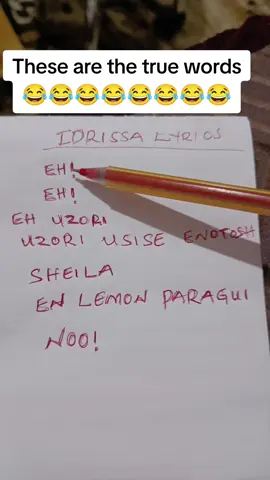 These are the true words
😂😂😂😂😂😂😂😂
IDRISSA LYRICS
EH!
EH!
EH UZORI
UZORI USISE ENOTOSH
SHEILA
EN LEMON PARAGUI
NOO!